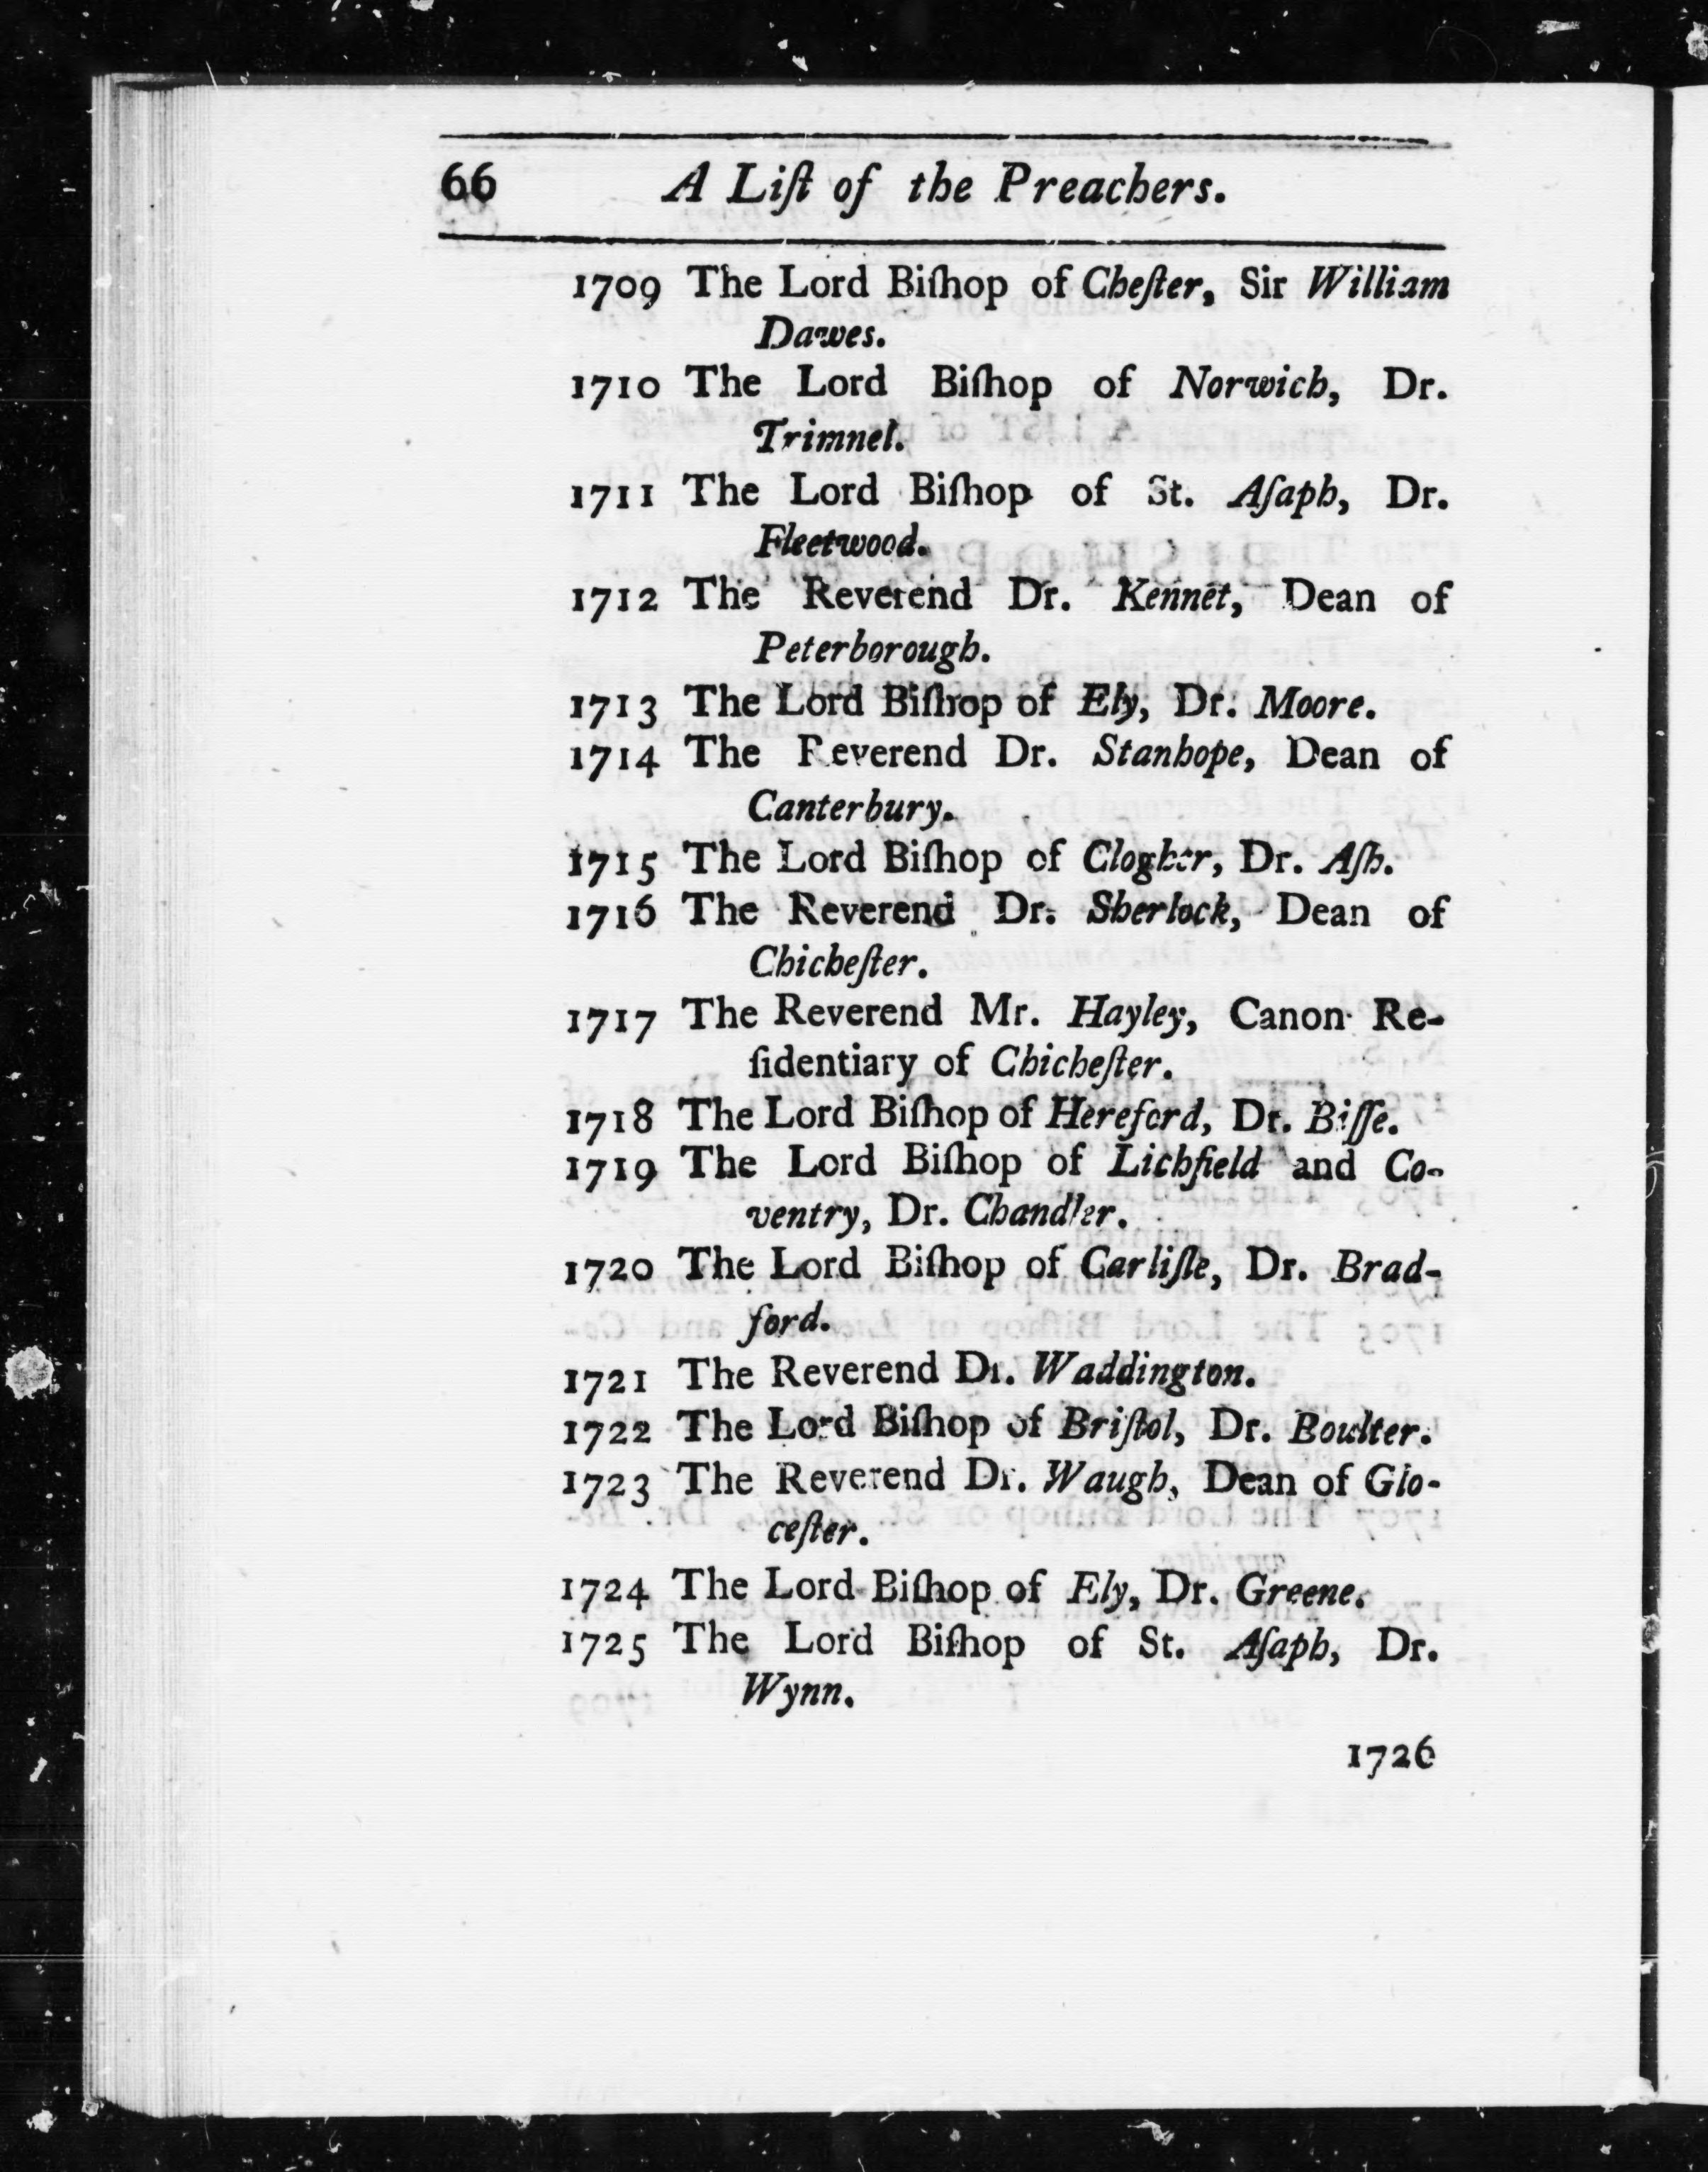 66 A Liſt of the Preachers.
1709 The Lord Biſhop of Cheſter, Sir William
Dawes.
1710 The Lord Biſhop of Norwich, Dr.
Trimnel.
1711 The Lord Biſhop of St. Aſaph, Dr.
Fleetwood.
1712 The Reverend Dr. Kennet, Dean of
Peterborough.
1713 The Lord Biſhop of Ely, Dr. Moore.
1714 The Reverend Dr. Stanhope, Dean of
Canterbury.
1715 The Lord Biſhop of Clogher, Dr. Aſh.
1716 The Reverend Dr. Sherlock, Dean of
Chicheſter.
1717 The Reverend Mr. Hayley, Canon Re-
ſidentiary of Chicheſter.
1718 The Lord Biſhop of Hereford, Dr. Biſſe.
1719 The Lord Biſhop of Lichfield and Co-
ventry, Dr. Chandler.
1720 The Lord Biſhop of Carliſle, Dr. Brad-
ford.
1721 The Reverend Dr. Waddington.
1722 The Lord Biſhop of Briſtol, Dr. Boulter.
1723 The Reverend Dr. Waugh, Dean of Glo-
ceſter.
1724 The Lord Biſhop of Ely, Dr. Greene.
1725 The Lord Biſhop of St. Aſaph, Dr.
Wynn.
1726